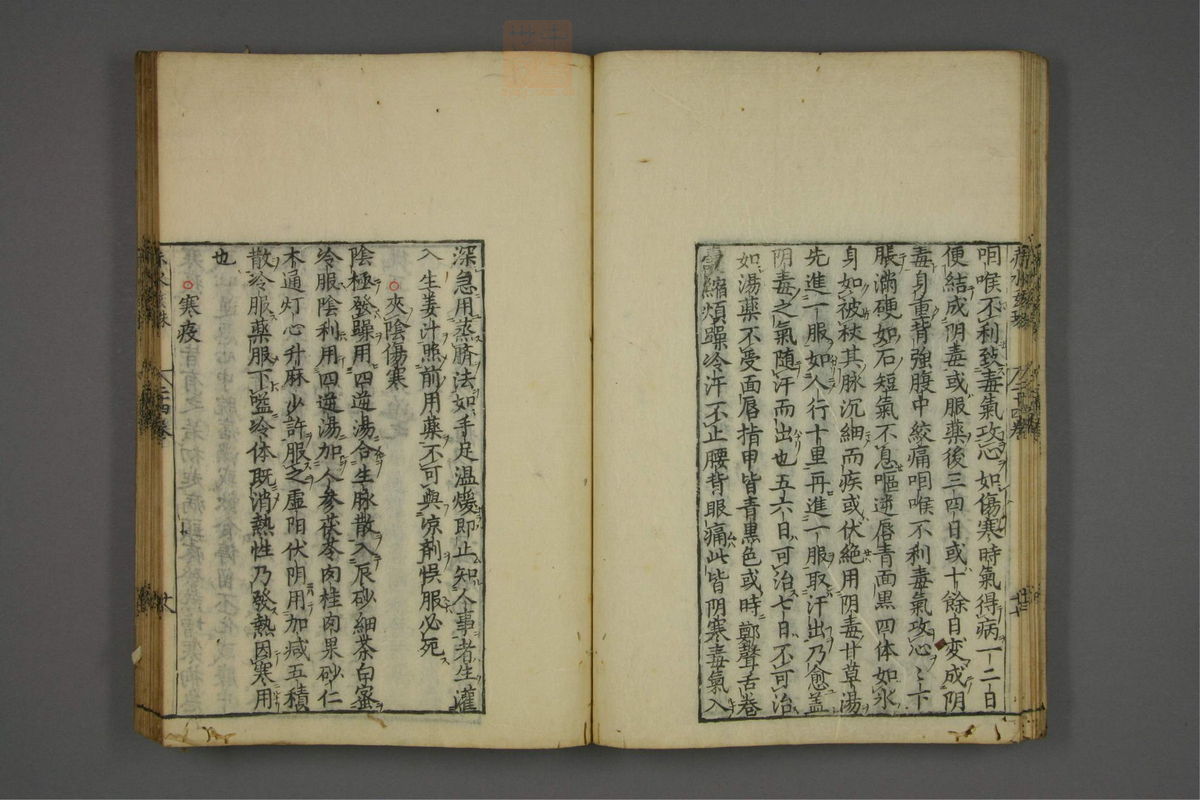 咽喉不利致毒氣攻心如傷寒時氣得病一二日
便結成阴毒或服藥後三四日或十餘日変成阴
毒身重背強腹中絞痛咽喉不利毒氣攻心〻下
脹満硬如石短氣不息嘔逆唇青面黒四体如氷
身如被杖其脉沉細而疾或伏絶用阴毒甘草湯
先進一服如人行十里再進一服取汗出乃愈盖
阴毒之氣随汗而出也五六日可治七日不可治
如湯藥不受面唇指甲皆青黒色或時鄭聲舌卷
縮煩躁冷汗不止腰背眼痛此皆阴寒毒氣入
深急用蒸臍法如手足温煖即止知人事者生灌
入生姜汁照前用藥不可與凉剤悞服必死
○夾陰傷寒
陰極發躁用四逆湯合生脉散入辰砂細茶白蜜
冷服陰利用四逆湯加人参茯苓肉桂肉果砂仁
木通灯心升麻少許服之虚阳伏阴用加减五積
散冷服藥服下嗌冷体既消熱性乃發熱因寒用
也
○寒疫